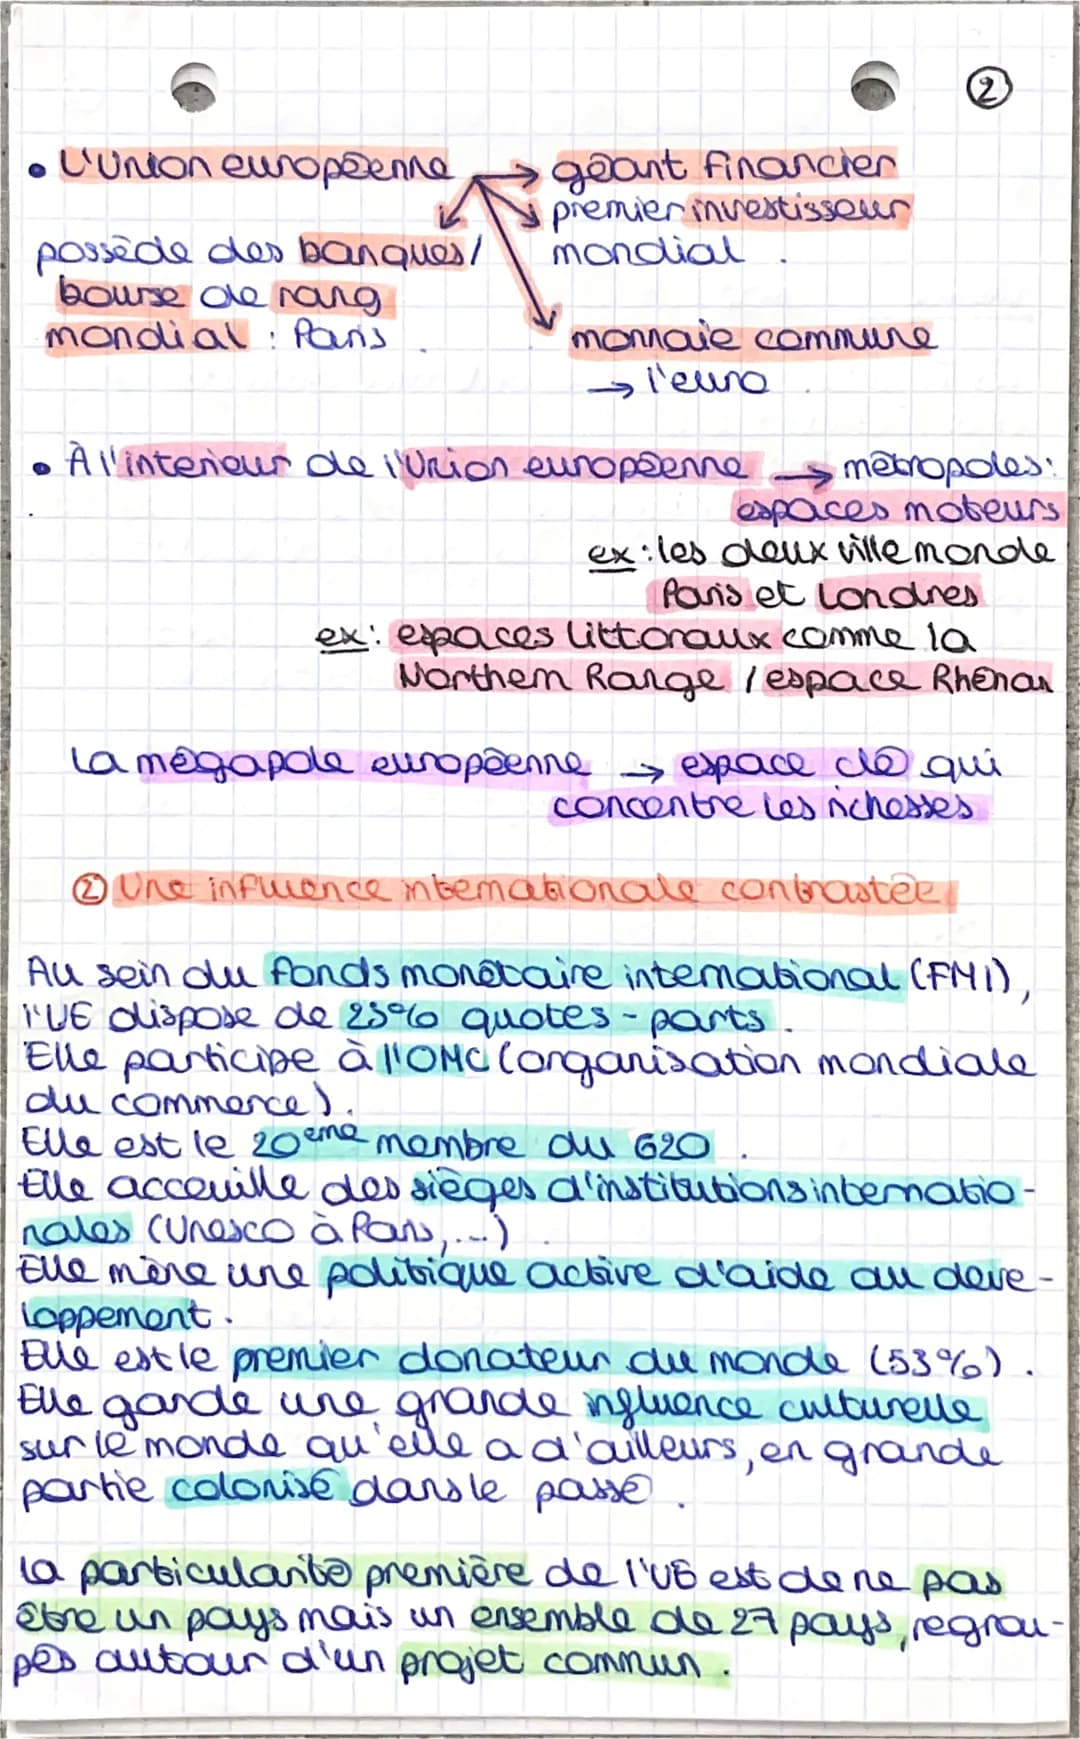 2
• L'Union européenne → géant financier
premier investisseur
mondial.
possède des banques/
bourse de rang
mondial : Paris.
monnaie commune
→ l'euro
• À l'interieur de l'Union européenne → métropoles:
espaces moteurs
ex: les deux ville monde
Paris et Londres
ex: espaces littoraux comme la
Northern Range / espace Rhénan
La mégapole européenne → espace clé qui
concentre les richesses
② Une influence internationale contrastée
Au sein du fonds monétaire international (FMI),
l'UE dispose de 25% quotes-parts.
Elle participe à l'OMC (organisation mondiale
du commerce).
Elle est le 20ème membre du G20.
Elle acceuille des sièges d'institutions internatio-
nales (Unesco à Paris,...).
Elle mène une politique active d'aide au déve-
loppement.
Elle est le premier donateur du monde (53%).
Elle garde une grande influence culturelle
sur le monde qu'elle a d'ailleurs, en grande
partie colonisé dans le passé.
La particularité première de l'UE est de ne pas
être un pays mais un ensemble de 27 pays, regrou-
pés autour d'un projet commun.